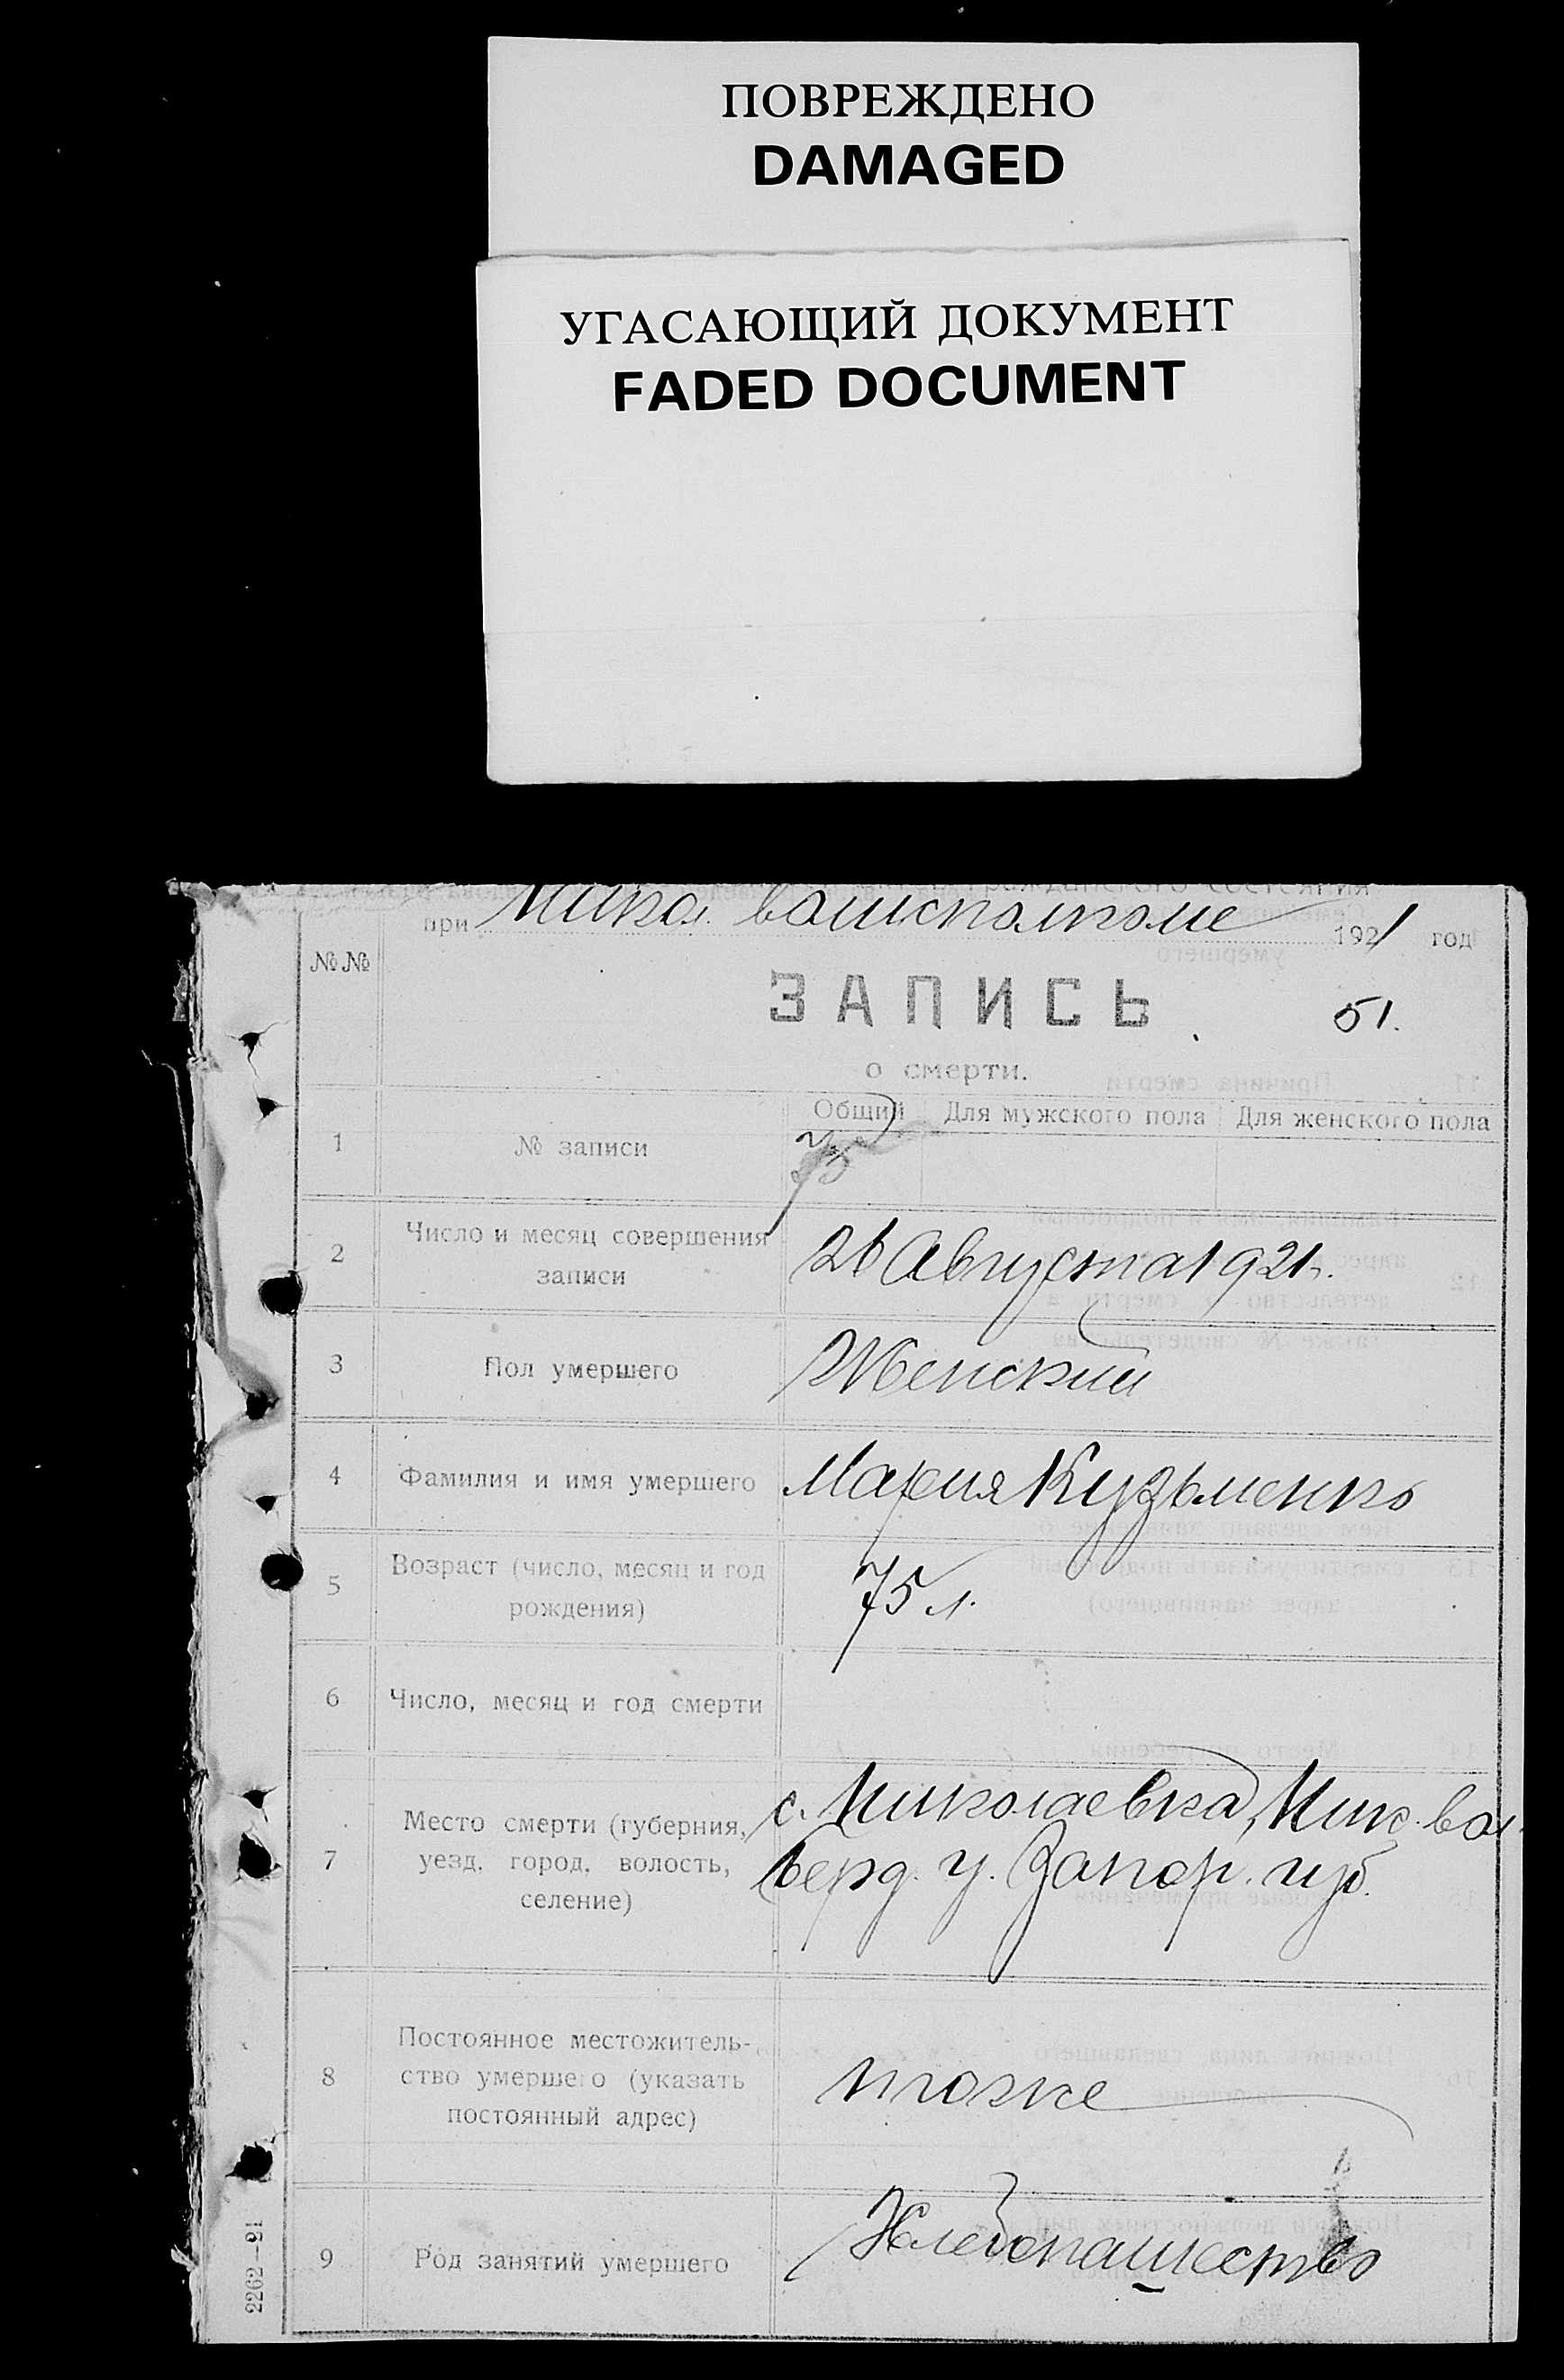 ПОВРЕЖДЕНО
DAMAGED
УГАСАЮЩИЙ ДОКУМЕНТ
FADED DOCUMENT
гражданского состояния
при Никол. волисполкоме 1921 год
№№
ЗАПИСЬ 51.
о смерти.
Общий Для мужского пола Для женского пола
1 № записи 75
2 Число и месяц совершения
записи
26 Августа 1921 г.
3 Пол умершего Женский
4 Фамилия и имя умершего Мария Кузьменко
5 Возраст (число, месяц и год
рождения)
75 л.
6 Число, месяц и год смерти
7 Место смерти (губерния,
уезд, город, волость,
селение)
с. Николаевка, Ник. вол.
Берд. у. Запор. губ.
8 Постоянное местожитель-
ство умершего (указать
постоянный адрес)
тоже
9 Род занятий умершего Хлебопашество
2262—21